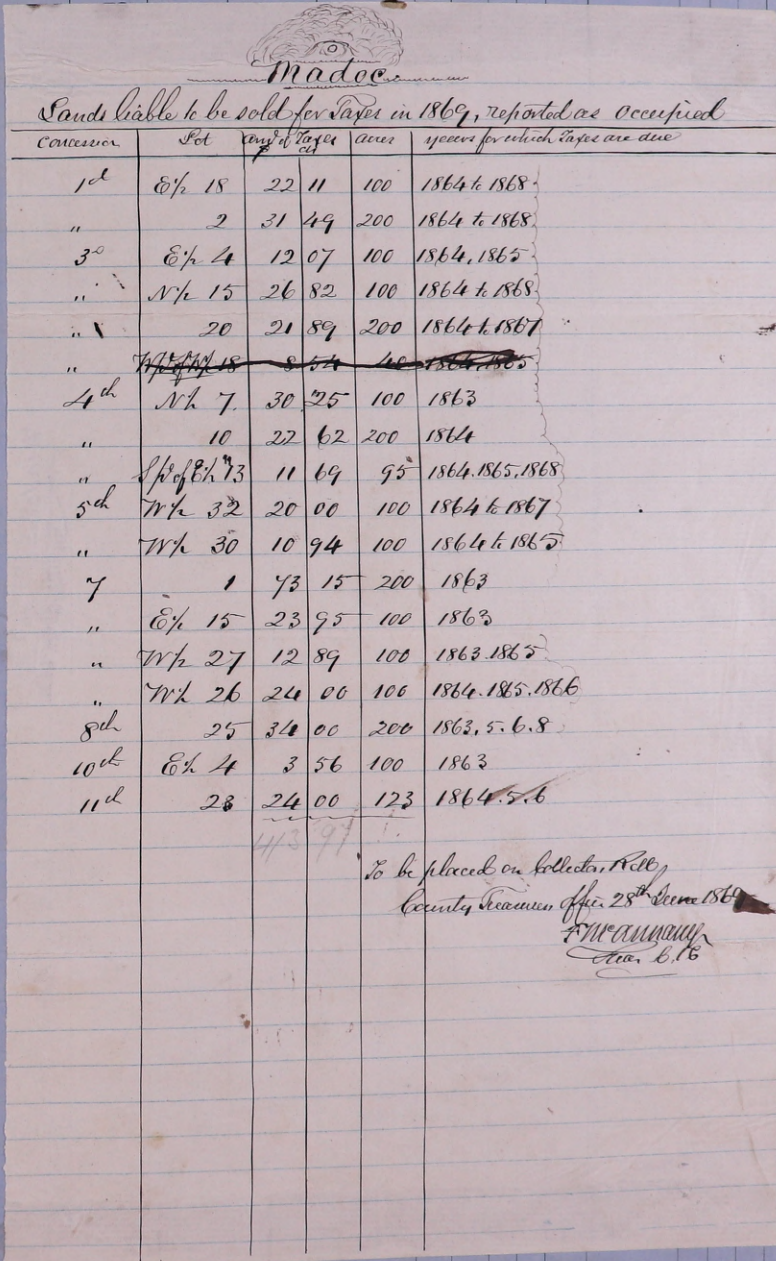 Madoc.
Lands liable to be sold for Taxes in 1869, reported as occupied
Concession Lot amt of Taxes acres years for which Taxes are due
$ cts
1st E½ 18 22 11 100 1864 to 1868
" 2 31 49 200 1864 to 1868
3d E½ 4 12 07 100 1864, 1865
" N½ 15 26 82 100 1864 to 1868
" 20 21 89 200 1864 to 1867
" W½ of W½ 18 8 54 40 1864, 1865
4th N½ 7 30 25 100 1863
" 10 22 62 200 1864
" S pt of E½ 13 11 69 95 1864. 1865. 1868
5th W½ 32 20 00 100 1864 to 1867
" W½ 30 10 94 100 1864 to 1865
7 1 73 15 200 1863
" E½ 15 23 95 100 1863
" W½ 27 12 89 100 1863. 1865
" W½ 26 24 00 100 1864. 1865. 1866
8th 25 34 00 200 1863, 5. 6. 8
10th E½ 4 3 56 100 1863
11th 23 24 00 123 1864. 5. 6
413 97
To be placed on Collectors Roll
County Treasurers office 28th June 1869
F McAnnany
Treas C. H